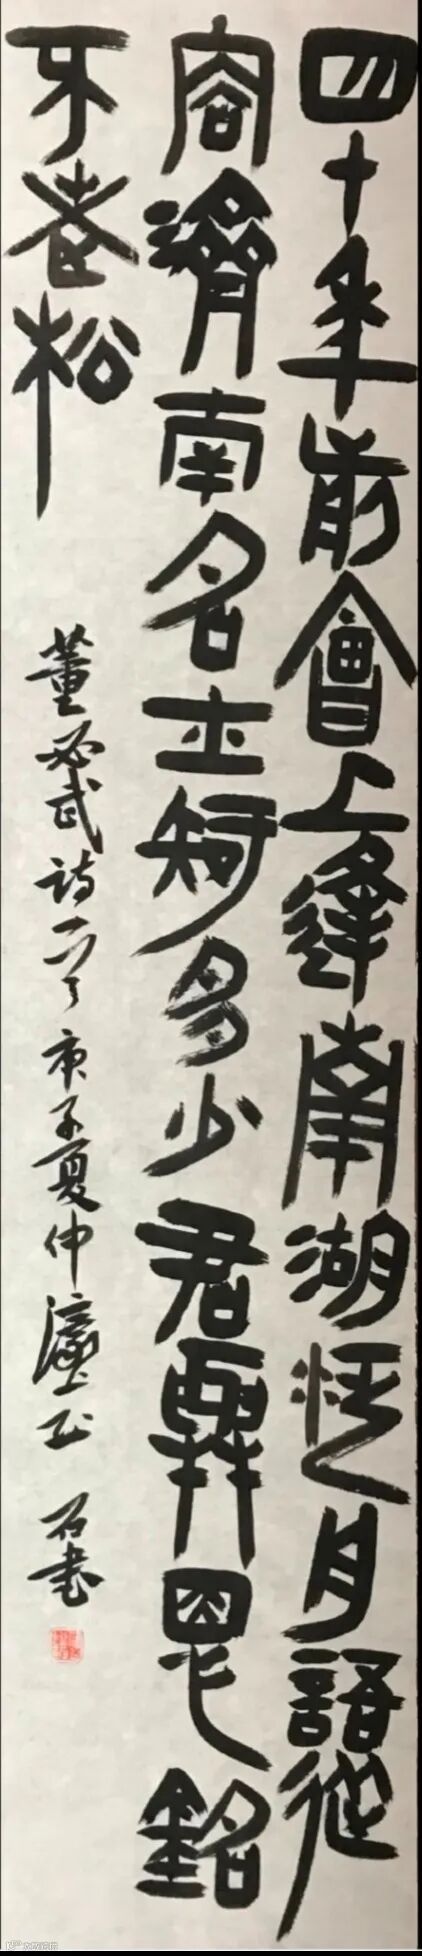 四十年前會上逢南湖泛舟語從
容濟南名士知多少君與恩銘
不老松
董必武詩一首庚子夏仲 石書